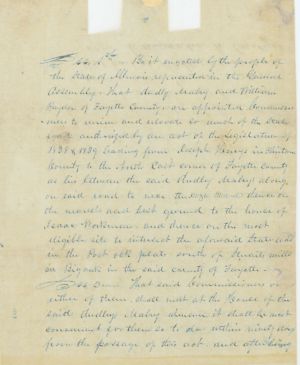 Sec. 1st Be it enacted by the people of
the State of Illinois represented in the General
Assembly That Dudly Mabry and William
of Fayette County are appointed Commissioners
to view and relocate so much of the State
road authorized by an act of the Legislature of
1838 & 1839 leading from Joseph in
County to the North East corner of Fayette County
as lies between the said Dudly Mabry along
on said road to near the thence on
the nearest and best ground to the house of
Isaac and thence on the most
eligible site to intersect the aforesaid State road
in the Post oak flats south of mills
in the said county of Fayette
Sec 2nd That said Commissioners or
either of them shall meet at the House of the
said Dudly Mabry whenever it shall be most
convenient for them so to do within ninety days
from the passage of this act and after being